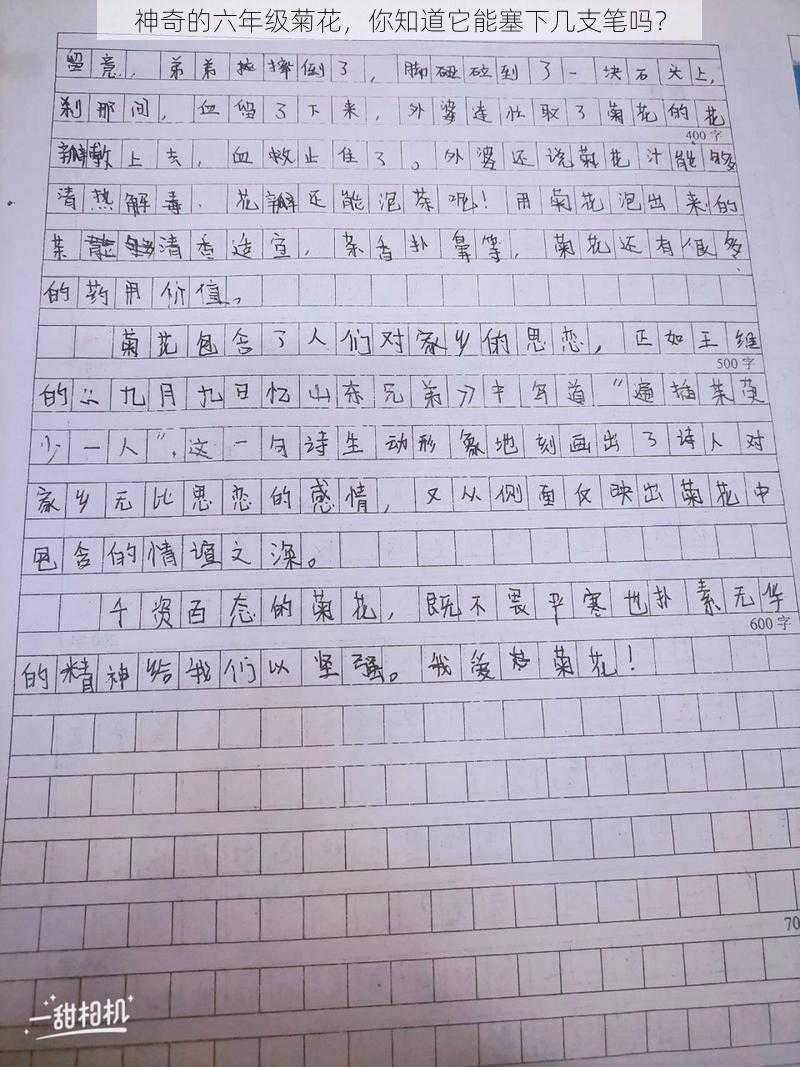 神奇的六年级菊花，你知道它能塞下几支笔吗？
留意，弟弟摔倒了，脚碰到了一块石头上，
刹那间，血留了下来，外婆连忙取了菊花的花
400字
瓣敷上去，血就止住了。外婆还说菊花汁能够
清热解毒.花瓣还能泡茶呢！用菊花泡出来的
茶清香适宜，茶香扑鼻等，菊花还有很多
的药用价值。
菊花包含了人们对家乡的思恋，正如王维
500字
的《九月九日忆山东兄弟》中写道“遍插茱萸
少一人”.这一句诗生动形象地刻画出了诗人对
家乡无比思恋的感情，又从侧面反映出菊花中
包含的情谊之深。
千资百态的菊花，既不畏严寒也扑素无华
600字
的精神给我们以坚强。我爱菊花！
70
一甜相机